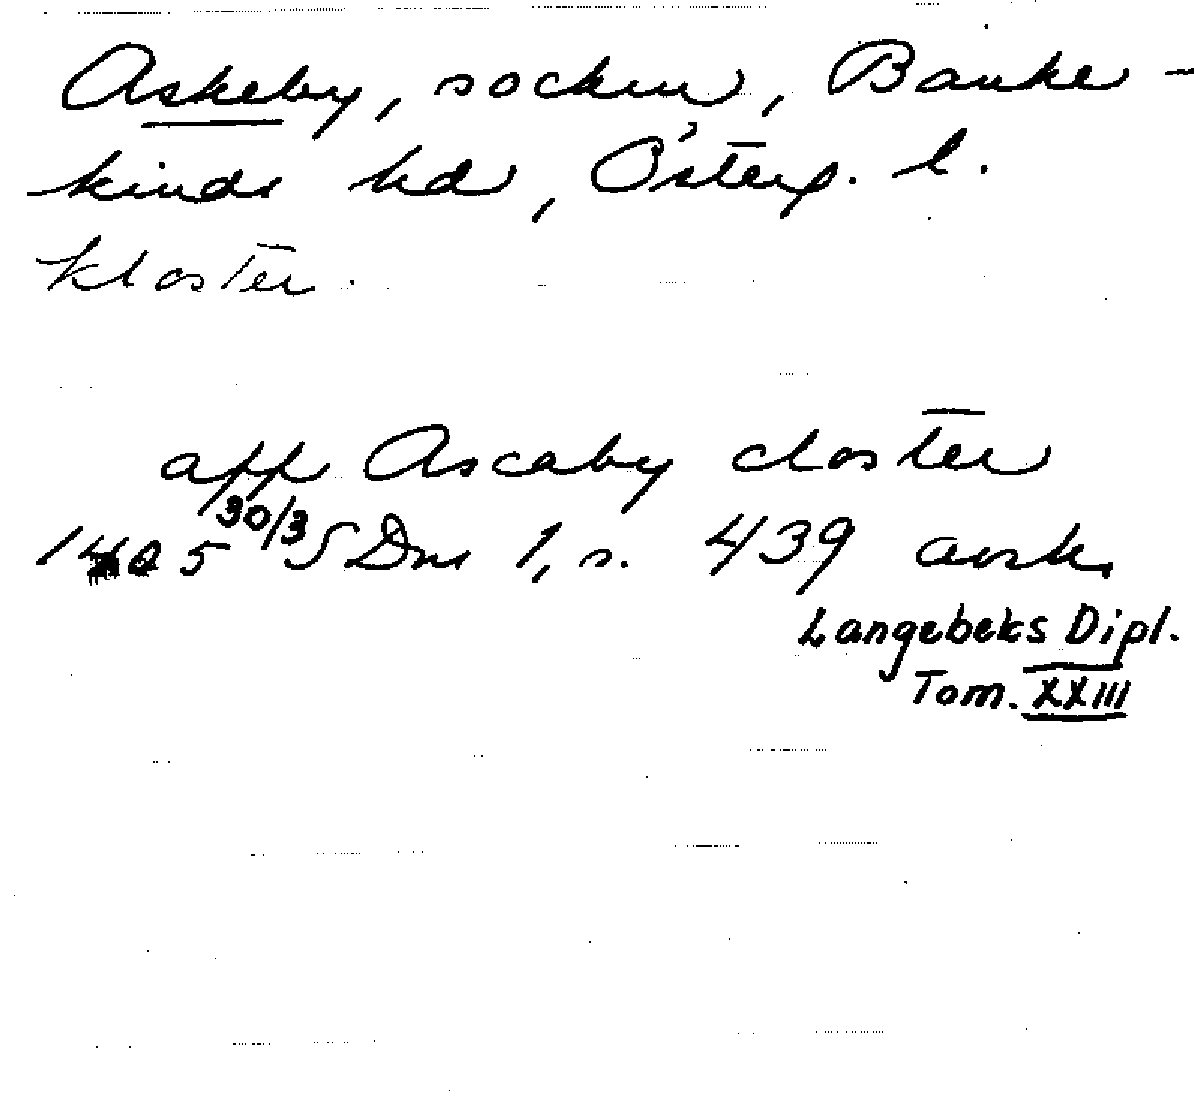 Askeby, socken, Banke-
kinds hd, Österg. l.
kloster.
aff Ascaby closter
1405 30/3 SDns 1, s. 439 avsk.
Langebeks Dipl.
Tom. XXIII